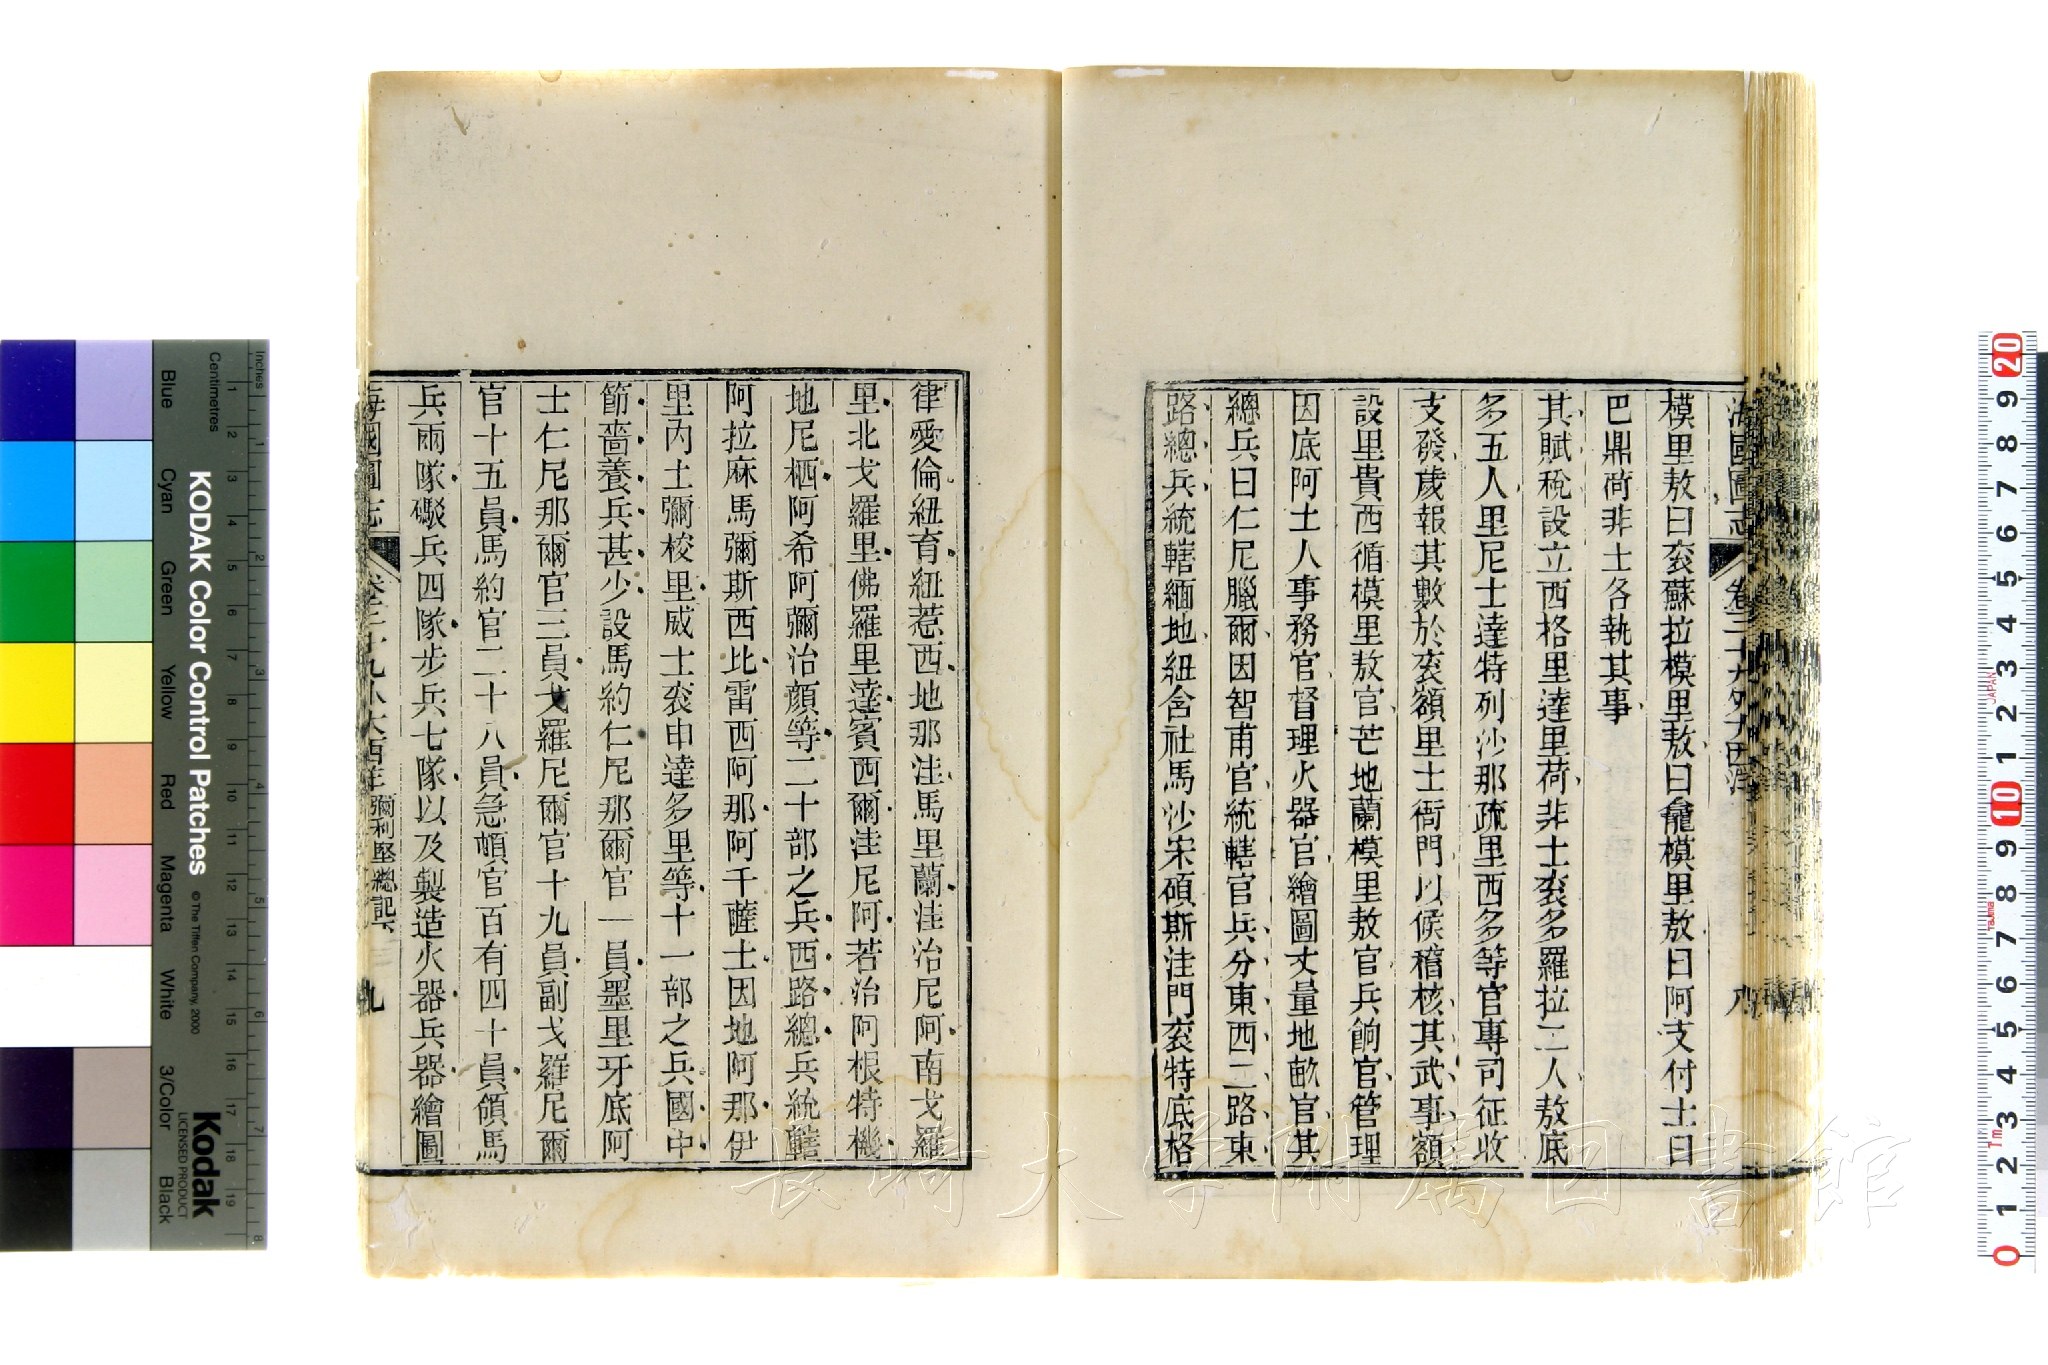 海國圖志 卷三十九外大西洋 八
模里敖曰衮蘇拉模里敖曰龕模里敖曰阿支付士曰
巴鼎荷非士各執其事
其賦稅設立西格里達里荷非士衮多羅拉二人敖底
多五人里尼士達特列沙那疏里西多等官專司征收
支發歲報其數於衮額里士衙門以候稽核其武事額
設里貴西循模里敖官芒地蘭模里敖官兵餉官管理
因底阿土人事務官督理火器官繪圖丈量地畝官其
總兵曰仁尼臘爾因智甫官統轄官兵分東西二路東
路總兵統轄緬地紐含社馬沙宋碩斯洼門衮特底格
律愛倫紐育紐惹西地那洼馬里蘭洼治尼阿南戈羅
里北戈羅里佛羅里達賓西爾洼尼阿若治阿根特機
地尼栖阿希阿彌治顏等二十部之兵西路總兵統轄
阿拉麻馬彌斯西比雷西阿那阿千薩士因地阿那伊
里內土彌梭里威士衮申達多里等十一部之兵國中
節嗇養兵甚少設馬約仁尼那爾官一員墨里牙底阿
士仁尼那爾官三員戈羅尼爾官十九員副戈羅尼爾
官十五員馬約官二十八員急頓官百有四十員領馬
兵兩隊礮兵四隊步兵七隊以及製造火器兵器繪圖
海國圖志 卷三十九外大西洋 彌利堅總記下 九
長崎大学附属図書館
KODAK Color Control Patches © The Tiffen Company, 2000
Kodak
LICENSED PRODUCT
Blue Cyan Green Yellow Red Magenta White 3/Color Black
Inches 1 2 3 4 5 6 7 8
Centimetres 1 2 3 4 5 6 7 8 9 10 11 12 13 14 15 16 17 18 19
20 9 8 7 6 5 4 3 2 1 10 9 8 7 6 5 4 3 2 1 0
JAPAN
Tajima
Tm